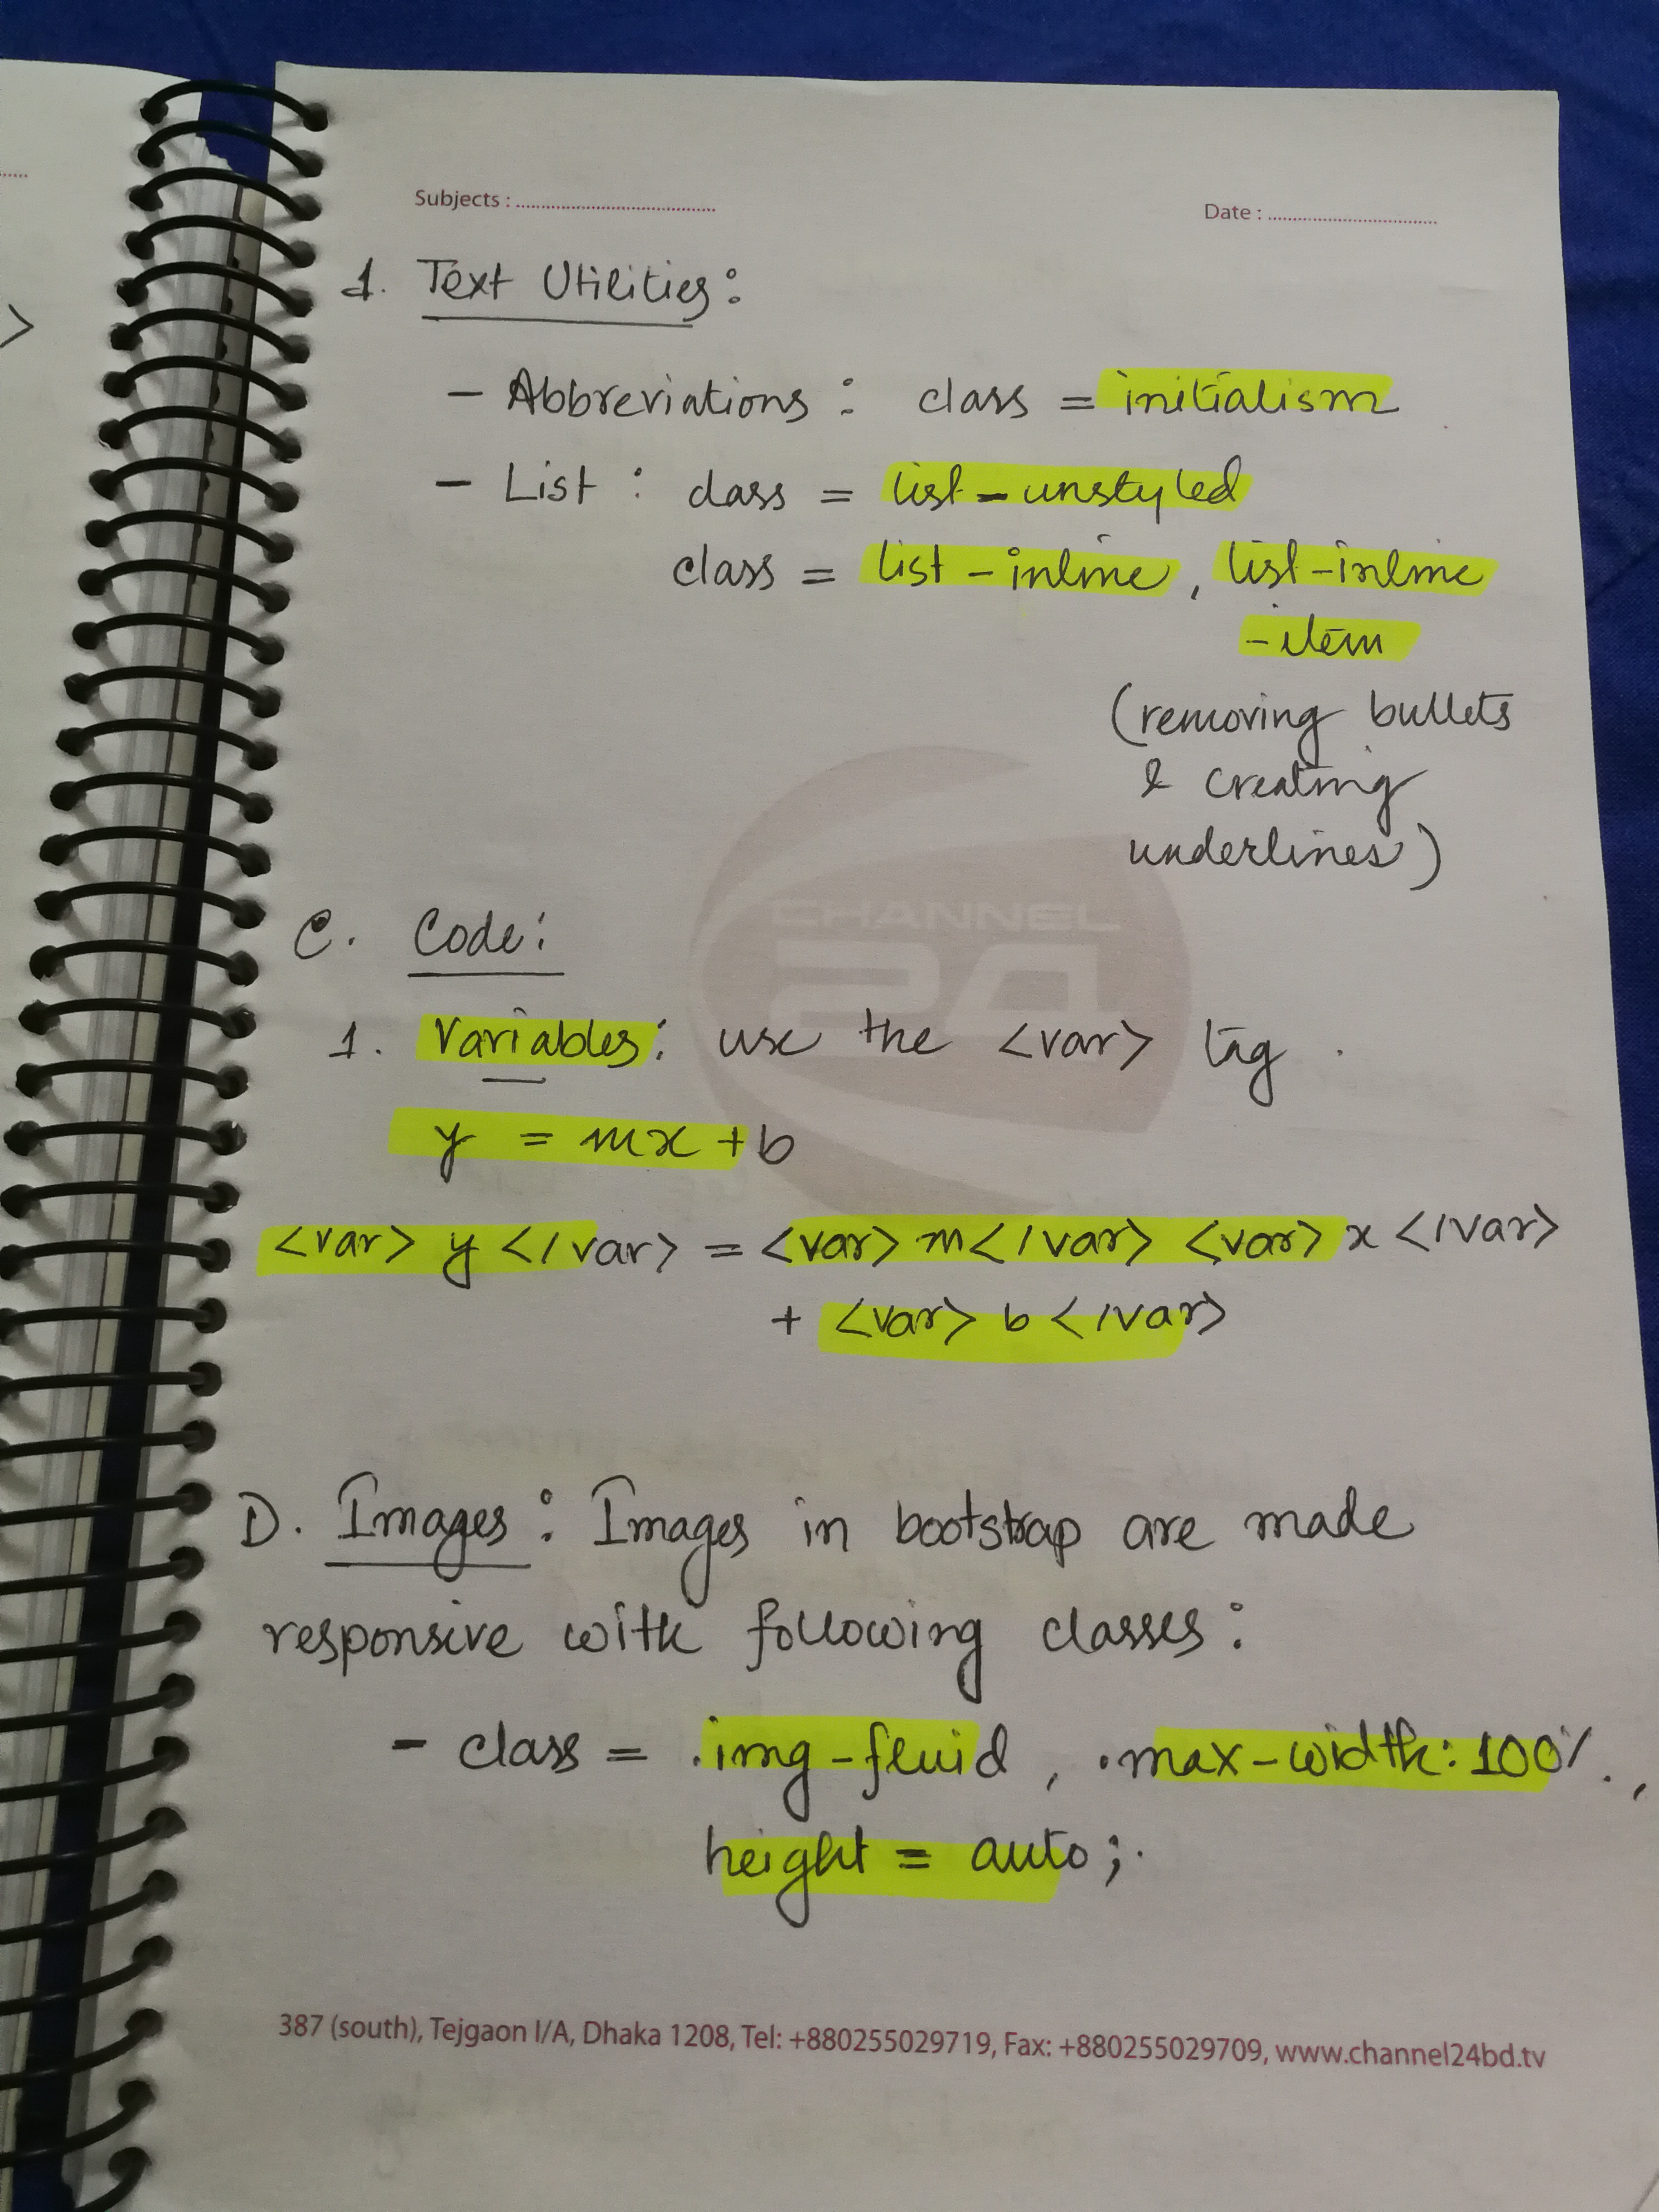 >
Subjects : ........................................
Date : ..................................
1. Text Utilities :
- Abbreviations : class = initialism
- List : class = list-unstyled
class = list-inline , list-inline
-item
(removing bullets
& creating
underlines)
CHANNEL
24
C. Code :
1. Variables : use the <var> tag .
y = mx + b
<var> y </var> = <var> m </var> <var> x </var>
+ <var> b </var>
D. Images : Images in bootstrap are made
responsive with following classes :
- class = .img-fluid , .max-width: 100%. ,
height = auto ;.
387 (south), Tejgaon I/A, Dhaka 1208, Tel: +880255029719, Fax: +880255029709, www.channel24bd.tv